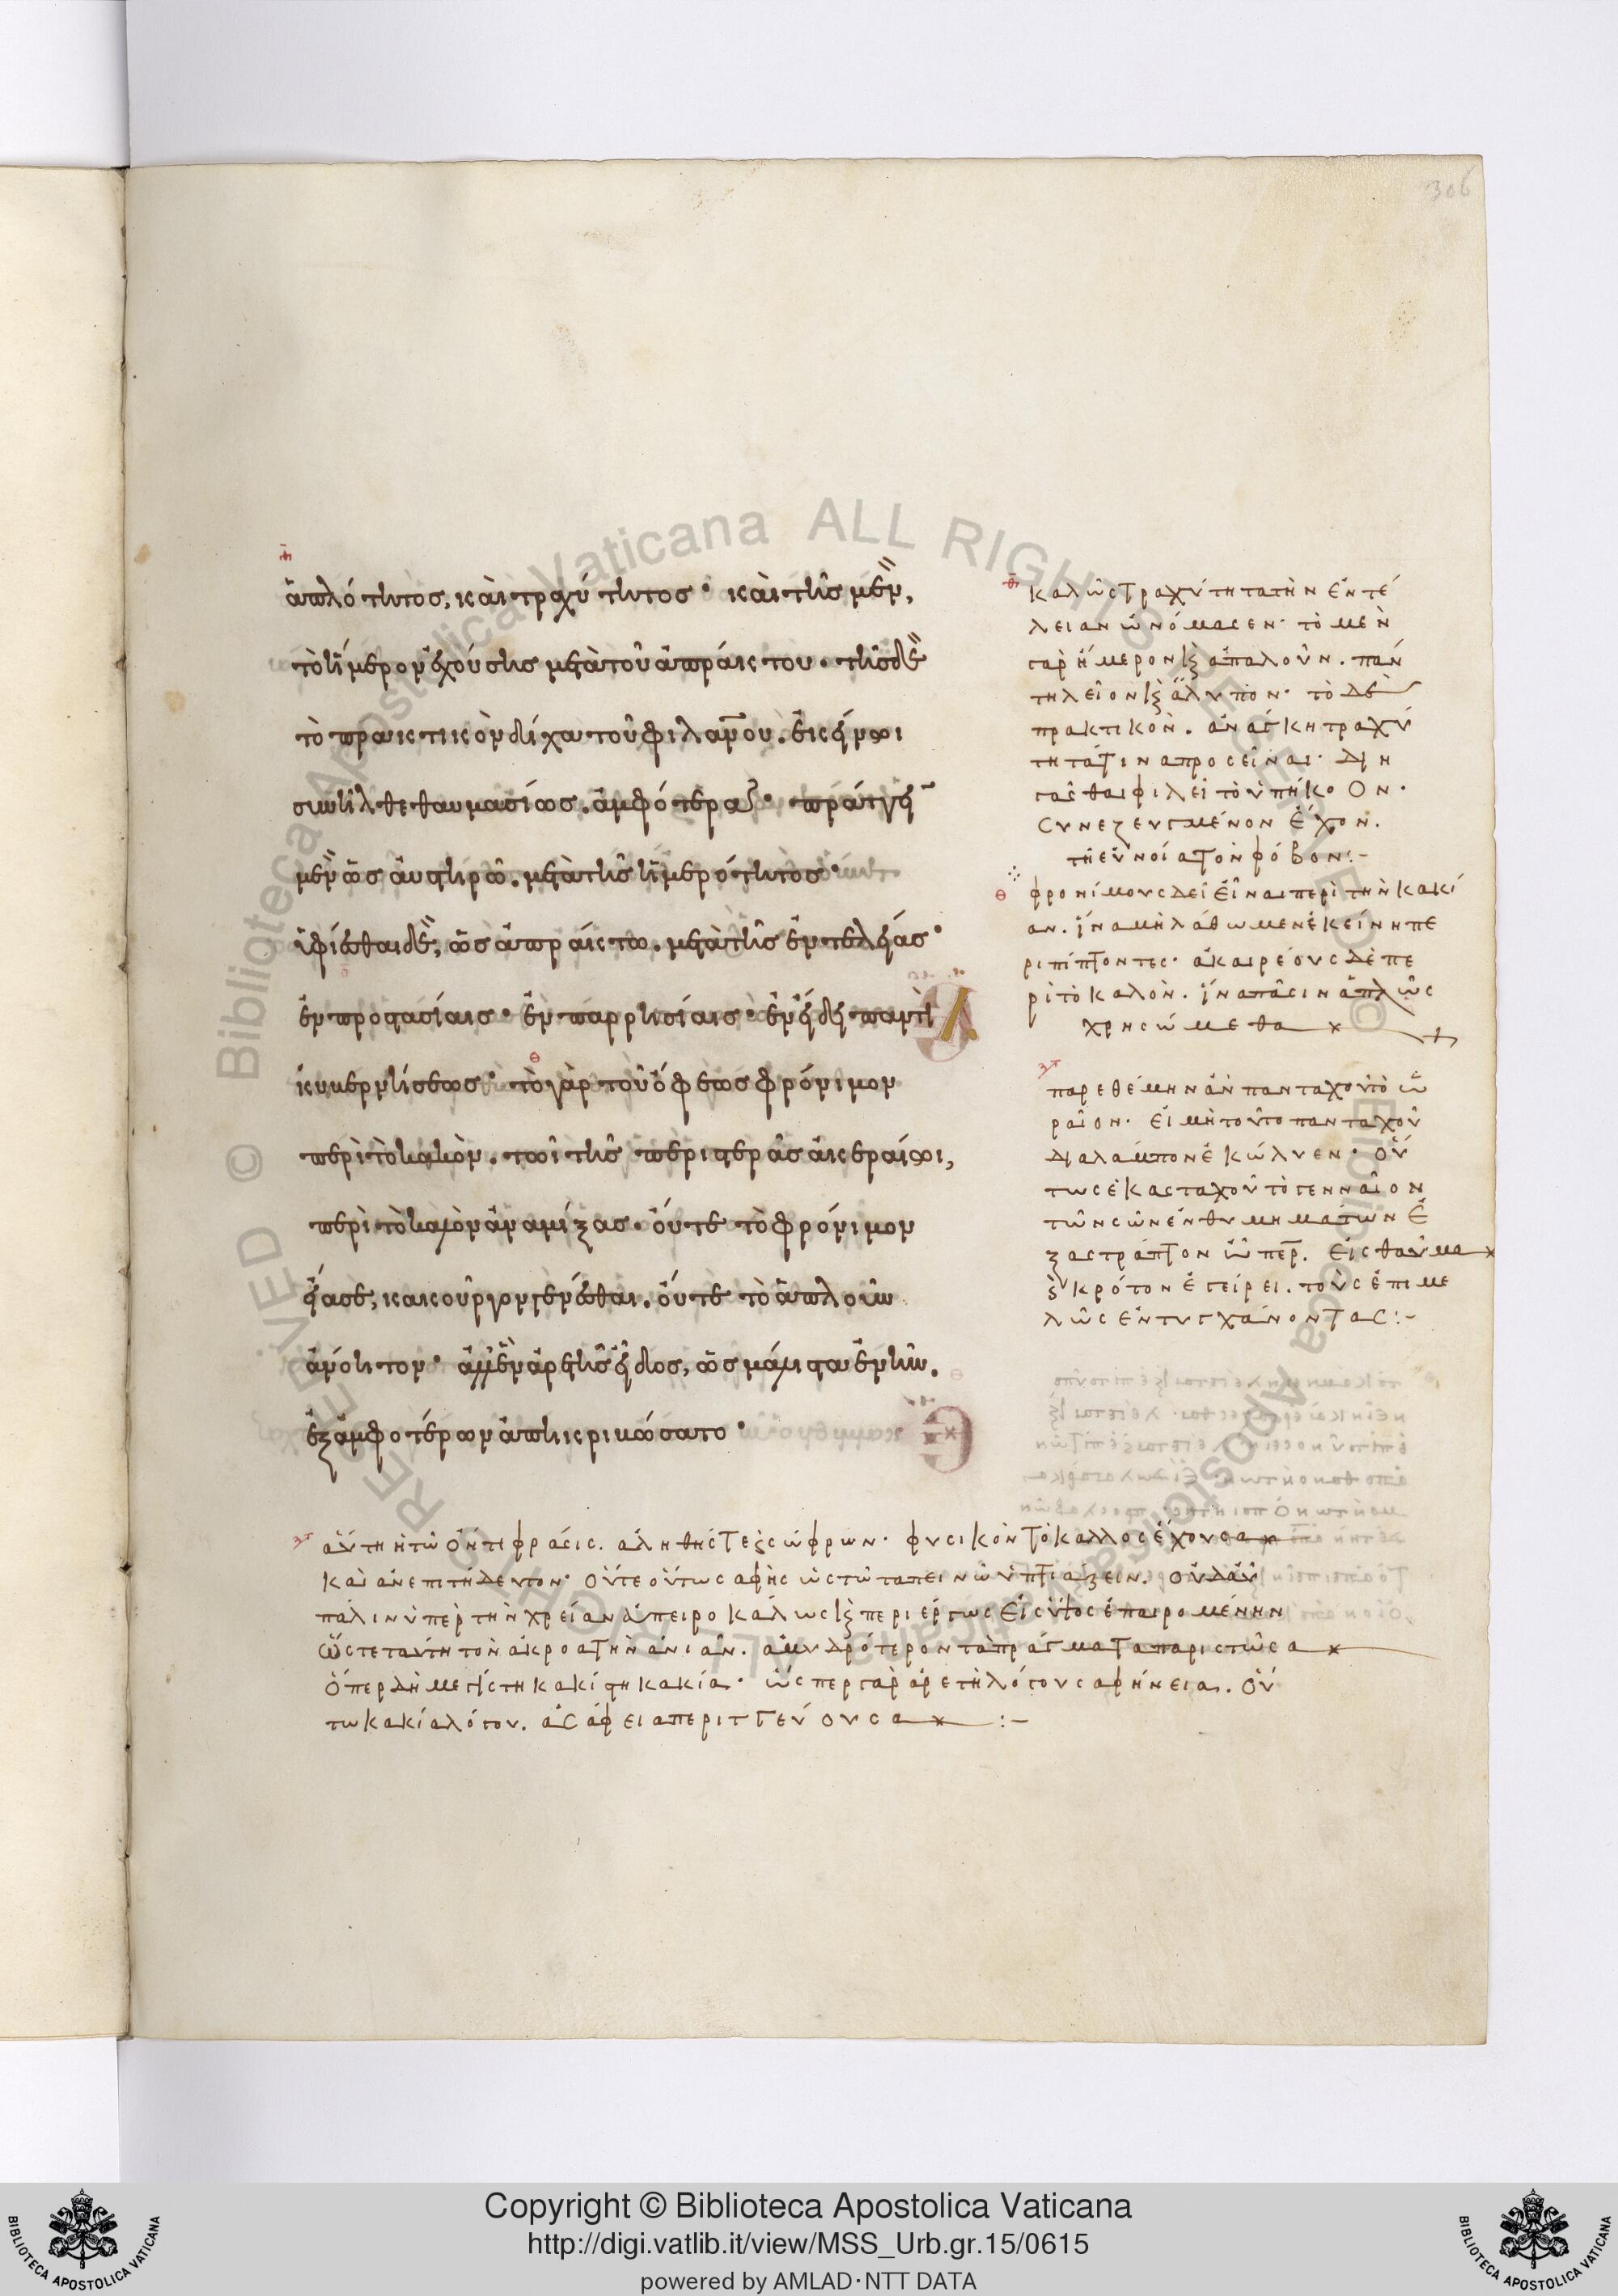 306
ἁπλότητος, καὶ τραχύτητος· καὶ τῆς μὲν,
τὸ ἥμερον ἐχούσης μετὰ τοῦ ἀπράκτου. τῆς δὲ
τὸ πρακτικὸν δίχα τοῦ φιλαν̅ου. εἰς ἕν φι
συνῆλθε θαυμασίως. ἀμφότερα· πράττει
μὲν ὡς αὐστηρῶ. μετὰ τῆς ἡμερότητος·
ὑφίεσθαι δὲ, ὡς ἀπράκτω. μετὰ τῆς ἐντελείας·
ἐν προστασίαις· ἐν παρρησίαις· ἐν εἴδει παντὶ
κυβερνήσεως· τὸ γὰρ τοῦ ὄφεως φρόνιμον
περὶ τὸ κακὸν. τῶι τῆς περιστερᾶς ἀκεραίωι,
περὶ τὸ καλὸν ἀναμίξας. οὔτε τὸ φρόνιμον
εἴασε, κακοῦργον γενέσθαι. οὔτε τὸ ἁπλοῦν
ἀνόητον· ἀλλ' ἓν ἀρετῆς εἶδος, ὡς μάλιστα ἐνῆν.
ἐξ ἀμφοτέρων ἀπηκριβώσατο·
καλῶς τραχύτητα τὴν ἐντέ
λειαν ὠνόμασεν· τὸ μὲν
γὰρ ἥμερον κ̀ ἁπαλοῦν. παν
τῆ λεῖον κ̀ ἄλυπον· τὸ δὲ
πρακτικὸν. ἀνάγκη τραχύ
τητά τινα προσεῖναι· δι' ἣ
γᾶσθαι φιλεῖ τὸ ὑπήκοον·
συνεζευγμένον ἔχον.
τῆ εὐνοία τὸν φόβον:-
φρονίμους δεῖ εἶναι περὶ τὴν κακί
αν. ἵνα μὴ λάθωμεν ἐκείνη πε
ριπίπτοντες· ἀκαιρέους δὲ πε
ρὶ τὸ καλὸν. ἵν' ἅπασιν ἁπλῶς
χρησώμεθα
παρεθέμην ἂν πανταχοῦ τὸ ὡ
ραῖον· εἰ μὴ τοῦτο πανταχοῦ
διαλάμπον ἐκώλυεν· οὕ
τως ἑκασταχοῦ τὸ γενναῖον
τῶν σῶν ἐνθυμημάτων ἐ
ξαστράπτον ὦ περ. εἰς θαῦμα
κ̀ κρότον ἐγείρει. τοὺς ἐπιμε
λῶς ἐντυγχάνοντας:-
αὕτη ἡ τῶ ὄντι φράσις. ἀληθής τε κ̀ σώφρων· φυσικὸν τὸ κάλλος ἔχουσα
καὶ ἀνεπιτήδευτον· οὔτε οὕτως ἀφὴς ὡς τῶ ταπεινῶ ὑπτιάζειν. οὐδ' αὖ
πάλιν ὑπὲρ τὴν χρείαν ἀπειροκάλως κ̀ περιέργως εἰς ὕψος ἐπαιρομένην
ὥστε ταύτη τὸν ἀκροατὴν ἀνιᾶν. ἀμυδρότερον τὰ πράγματα παριστῶσα
ὅπερ δὴ μεγίστη κακίστη κακία· ὥσπερ γὰρ ἀρετὴ λόγου σαφήνεια. οὕ
τω κακία λόγου. ἀσάφεια περιττεύουσα :-
Biblioteca Apostolica Vaticana ALL RIGHTS RESERVED ©
Copyright © Biblioteca Apostolica Vaticana
http://digi.vatlib.it/view/MSS_Urb.gr.15/0615
powered by AMLAD·NTT DATA
BIBLIOTECA APOSTOLICA VATICANA
BIBLIOTECA APOSTOLICA VATICANA